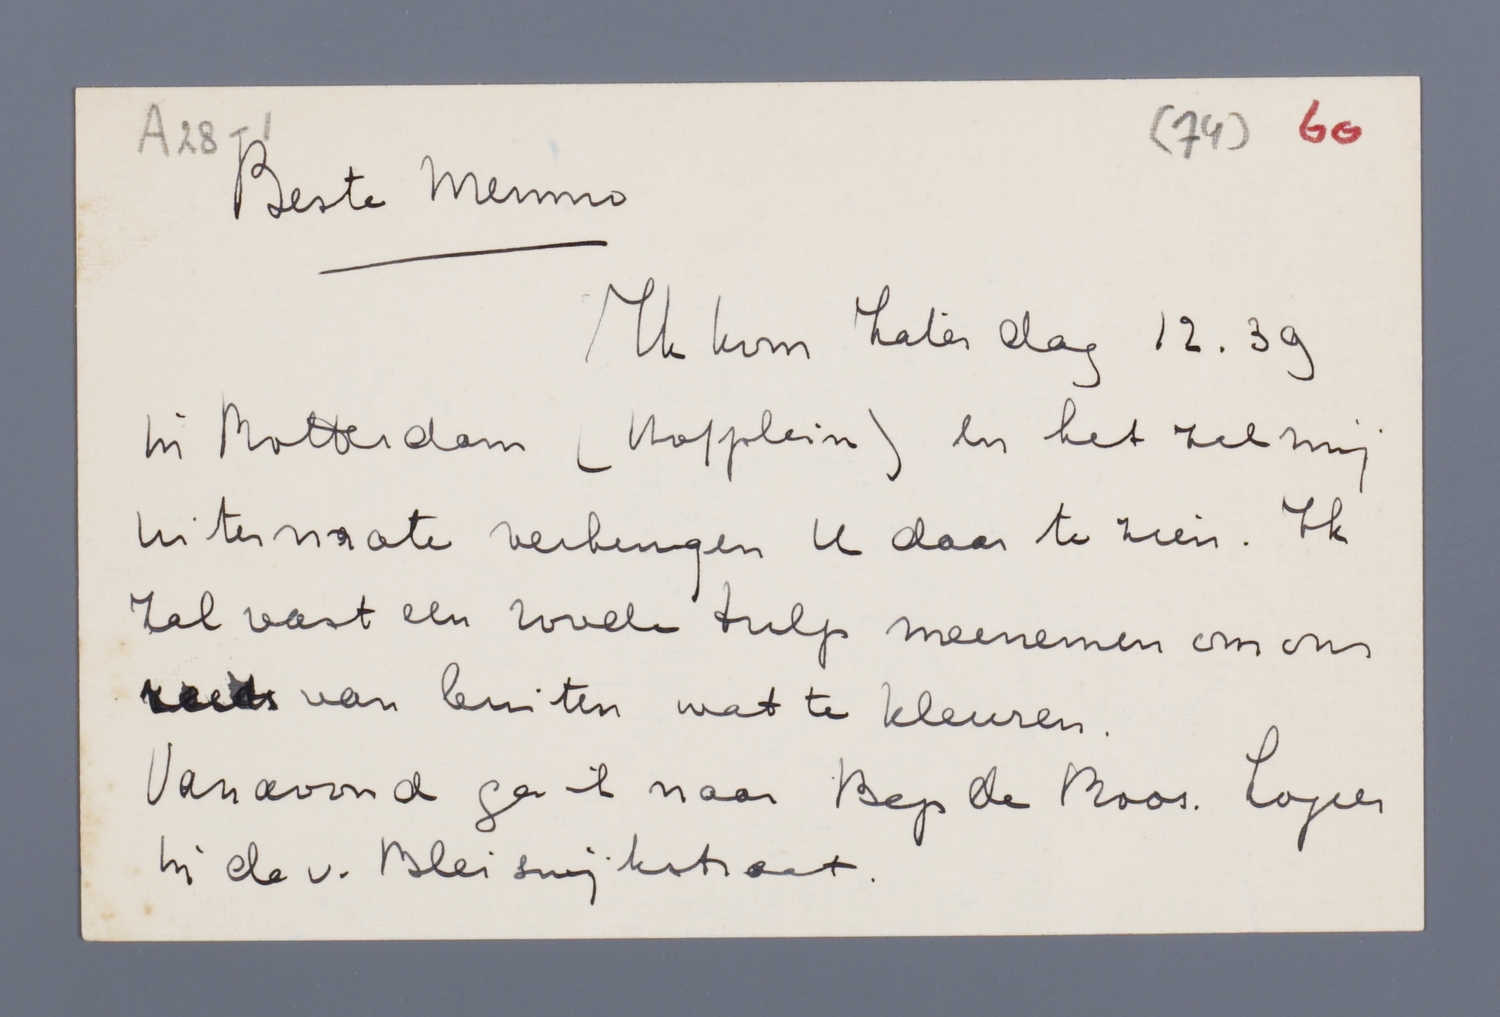 A28-I (74) 60
Beste Menno
Ik kom Zaterdag 12.39
in Rotterdam (Hofplein) en het zal mij
uitermate verheugen U daar te zien. Ik
zal vast een roode tulp meenemen om ons
reeds van buiten wat te kleuren.
Vanavond ga ik naar Bep de Roos. Logeer
in de v. Bleiswijkstraat.